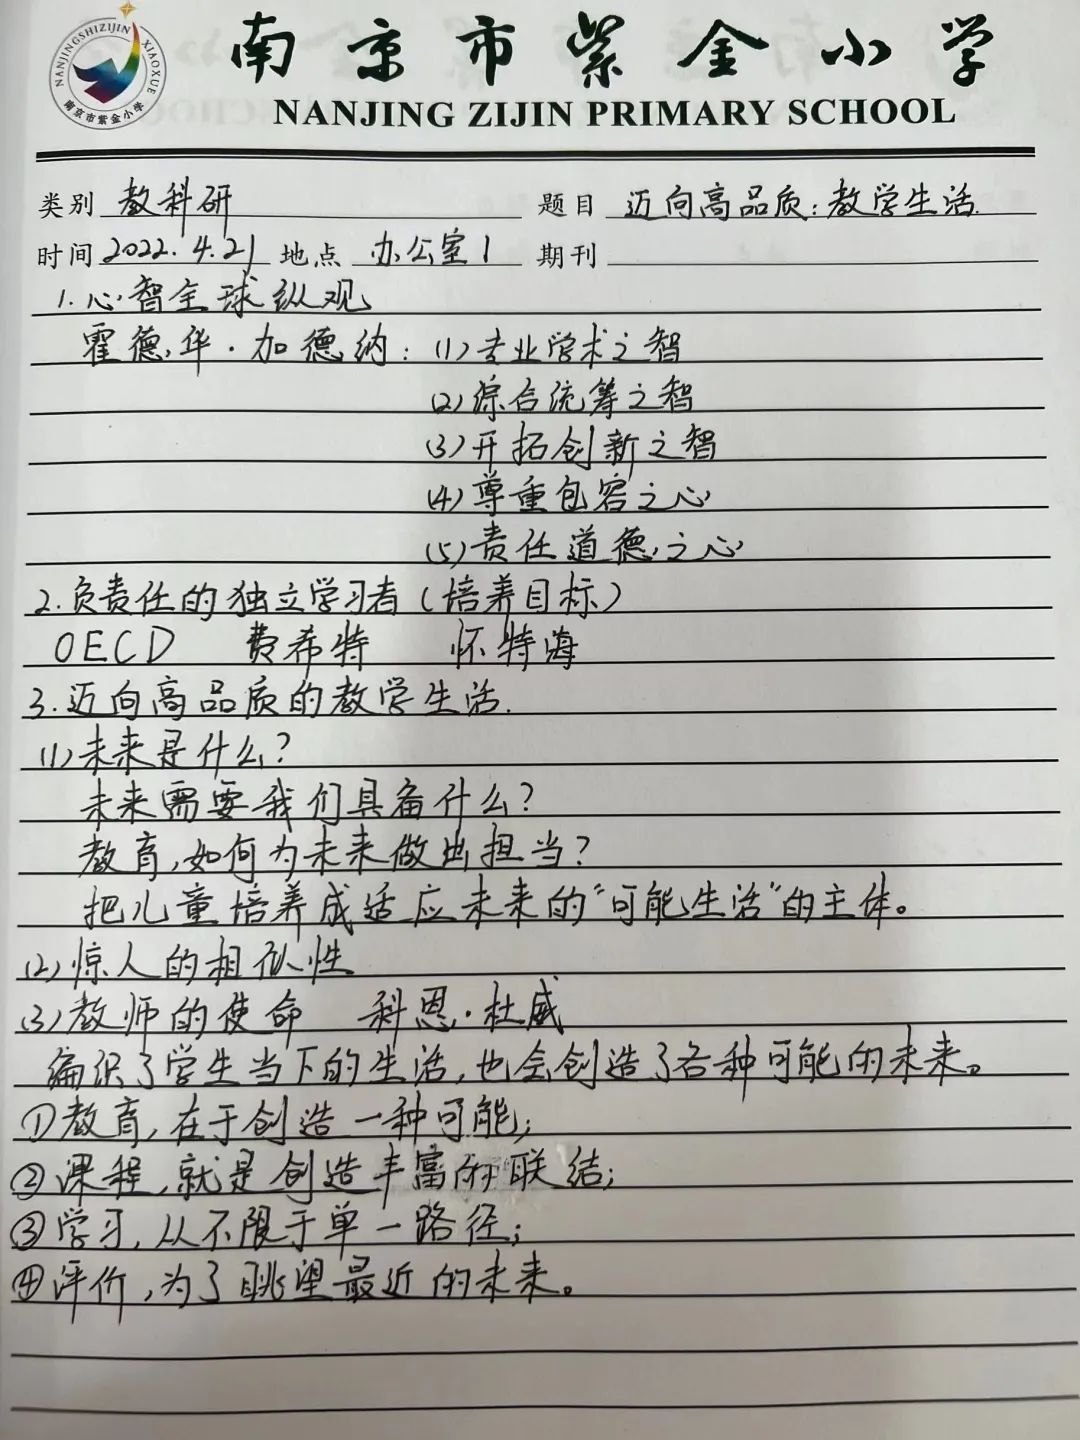 NANJINGSHIZIJIN XIAOXUE
南京市紫金小学
南京市紫金小学
NANJING ZIJIN PRIMARY SCHOOL
类别 教科研 题目 迈向高品质:教学生活.
时间 2022.4.21 地点 办公室1 期刊
1.心智全球纵观
霍德华·加德纳:(1)专业学术之智
(2)综合统筹之智
(3)开拓创新之智
(4)尊重包容之心
(5)责任道德之心
2.负责任的独立学习者(培养目标)
OECD 费希特 怀特海
3.迈向高品质的教学生活.
(1)未来是什么?
未来需要我们具备什么?
教育,如何为未来做出担当?
把儿童培养成适应未来的“可能生活”的主体。
(2)惊人的相似性
(3)教师的使命 科恩·杜威
编织了学生当下的生活,也会创造了各种可能的未来。
①教育,在于创造一种可能;
②课程,就是创造丰富的联结;
③学习,从不限于单一路径;
④评价,为了眺望最近的未来。